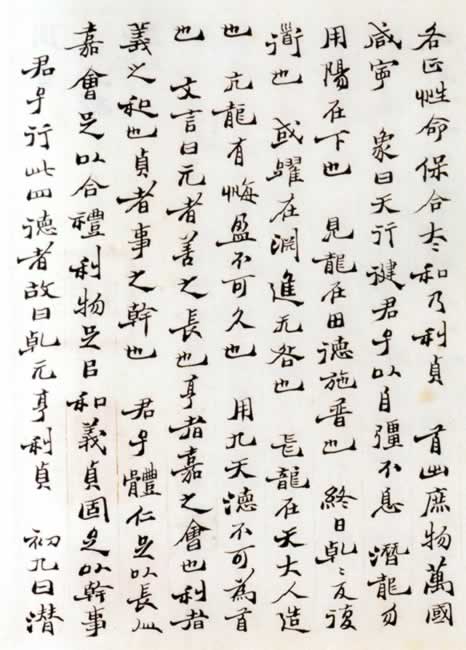 各正性命保合太和乃利貞　首出庶物萬國
咸寧　象曰天行健君子以自彊不息　潛龍勿
用陽在下也　見龍在田德施普也　終日乾〻反復
衟也　或躍在淵進无咎也　飛龍在天大人造
也　亢龍有悔盈不可久也　用九天德不可為首
也　文言曰元者善之長也亨者嘉之會也利者
義之和也貞者事之幹也　君子體仁足以長人
嘉會足以合禮利物足以和義貞固足以幹事
君子行此四德者故曰乾元亨利貞　初九曰潜